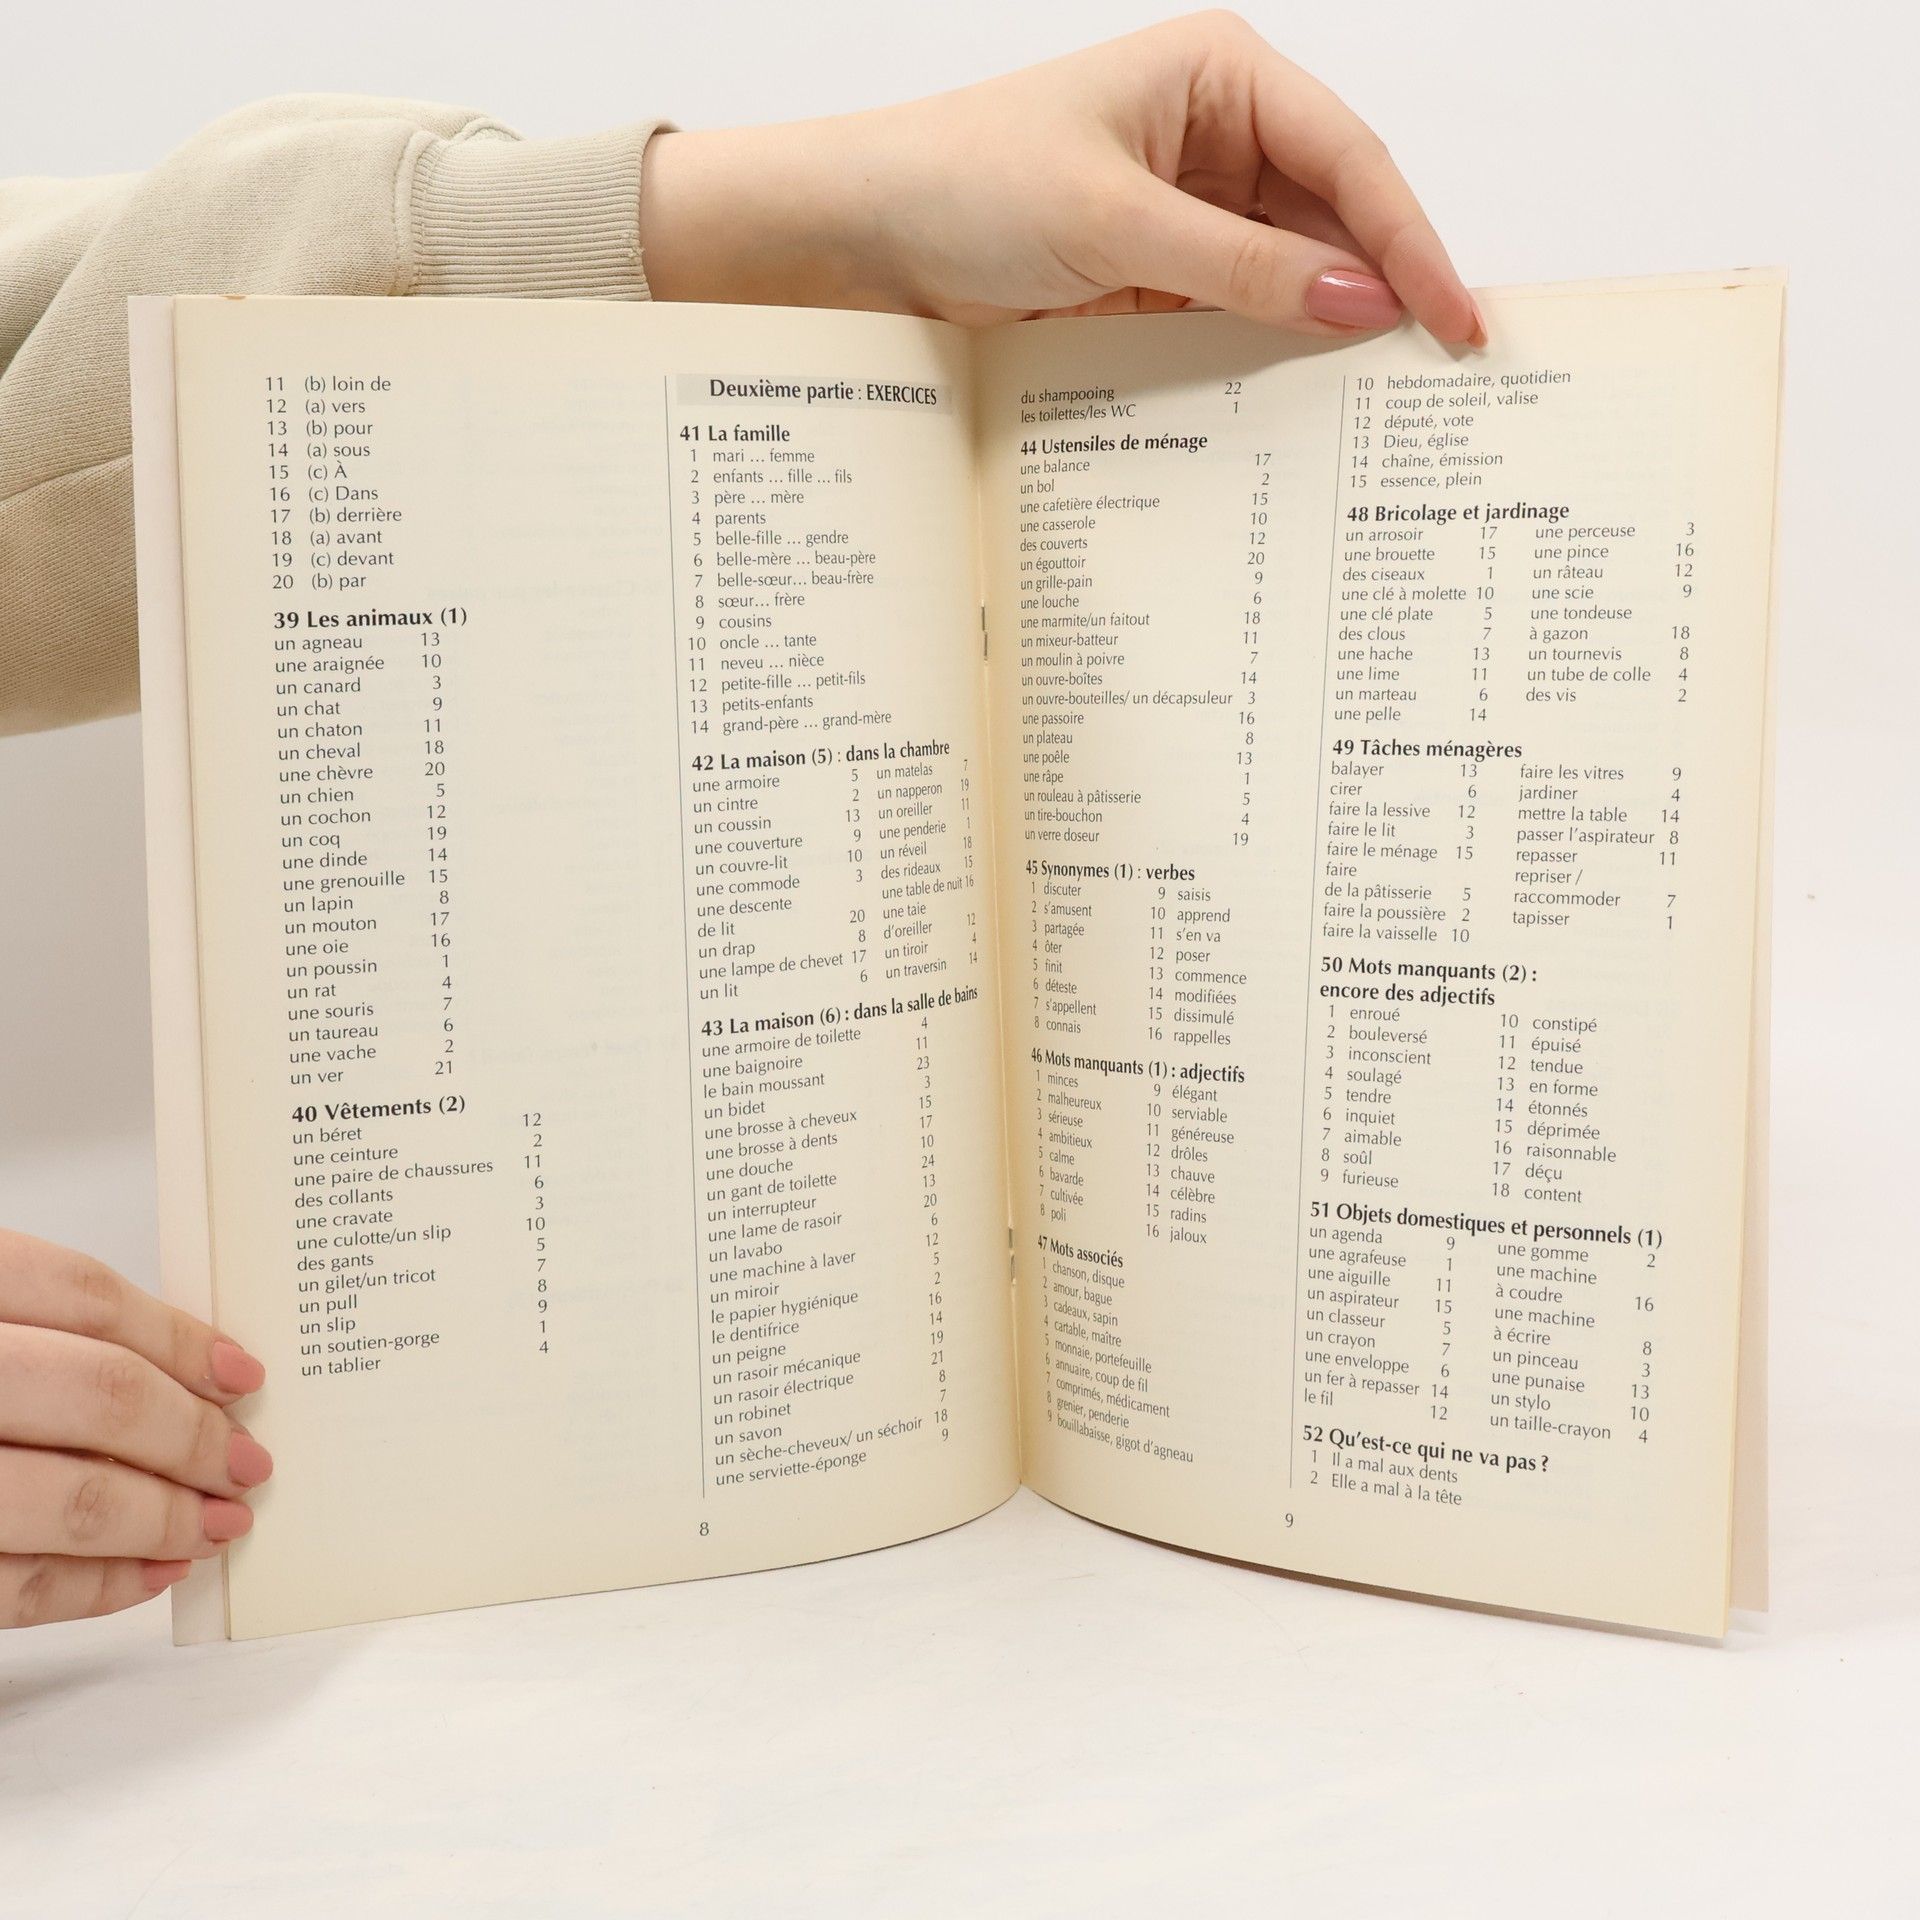 11 (b) loin de
12 (a) vers
13 (b) pour
14 (a) sous
15 (c) À
16 (c) Dans
17 (b) derrière
18 (a) avant
19 (c) devant
20 (b) par
39 Les animaux (1)
un agneau 13
une araignée 10
un canard 3
un chat 9
un chaton 11
un cheval 18
une chèvre 20
un chien 5
un cochon 12
un coq 19
une dinde 14
une grenouille 15
un lapin 8
un mouton 17
une oie 16
un poussin 1
un rat 4
une souris 7
un taureau 6
une vache 2
un ver 21
40 Vêtements (2)
un béret 12
une ceinture 2
une paire de chaussures 11
des collants 6
une cravate 3
une culotte/un slip 10
des gants 5
un gilet/un tricot 7
un pull 8
un slip 9
un soutien-gorge 1
un tablier 4
Deuxième partie : EXERCICES
41 La famille
1 mari ... femme
2 enfants ... fille ... fils
3 père ... mère
4 parents
5 belle-fille ... gendre
6 belle-mère ... beau-père
7 belle-sœur... beau-frère
8 sœur... frère
9 cousins
10 oncle ... tante
11 neveu ... nièce
12 petite-fille ... petit-fils
13 petits-enfants
14 grand-père ... grand-mère
42 La maison (5) : dans la chambre
une armoire 5
un cintre 2
un coussin 13
une couverture 9
un couvre-lit 10
une commode 3
une descente
de lit 20
un drap 8
une lampe de chevet 17
un lit 6
un matelas 7
un napperon 19
un oreiller 11
une penderie 1
un réveil 18
des rideaux 15
une table de nuit 16
une taie
d'oreiller 12
un tiroir 4
un traversin 14
43 La maison (6) : dans la salle de bains
une armoire de toilette 4
une baignoire 11
le bain moussant 23
un bidet 3
une brosse à cheveux 15
une brosse à dents 17
une douche 10
un gant de toilette 24
un interrupteur 13
une lame de rasoir 20
un lavabo 6
une machine à laver 12
un miroir 5
le papier hygiénique 2
le dentifrice 16
un peigne 14
un rasoir mécanique 19
un rasoir électrique 21
un robinet 8
un savon 7
un sèche-cheveux/ un séchoir 18
une serviette-éponge 9
8
du shampooing 22
les toilettes/les WC 1
44 Ustensiles de ménage
une balance 17
un bol 2
une cafetière électrique 15
une casserole 10
des couverts 12
un égouttoir 20
un grille-pain 9
une louche 6
une marmite/un faitout 18
un mixeur-batteur 11
un moulin à poivre 7
un ouvre-boîtes 14
un ouvre-bouteilles/ un décapsuleur 3
une passoire 16
un plateau 8
une poêle 13
une râpe 1
un rouleau à pâtisserie 5
un tire-bouchon 4
un verre doseur 19
45 Synonymes (1) : verbes
1 discuter
2 s'amusent
3 partagée
4 ôter
5 finit
6 déteste
7 s'appellent
8 connais
9 saisis
10 apprend
11 s'en va
12 poser
13 commence
14 modifiées
15 dissimulé
16 rappelles
46 Mots manquants (1) : adjectifs
1 minces
2 malheureux
3 sérieuse
4 ambitieux
5 calme
6 bavarde
7 cultivée
8 poli
9 élégant
10 serviable
11 généreuse
12 drôles
13 chauve
14 célèbre
15 radins
16 jaloux
47 Mots associés
1 chanson, disque
2 amour, bague
3 cadeaux, sapin
4 cartable, maître
5 monnaie, portefeuille
6 annuaire, coup de fil
7 comprimés, médicament
8 grenier, penderie
9 bouillabaisse, gigot d'agneau
10 hebdomadaire, quotidien
11 coup de soleil, valise
12 député, vote
13 Dieu, église
14 chaîne, émission
15 essence, plein
48 Bricolage et jardinage
un arrosoir 17
une brouette 15
des ciseaux 1
une clé à molette 10
une clé plate 5
des clous 7
une hache 13
une lime 11
un marteau 6
une pelle 14
une perceuse 3
une pince 16
un râteau 12
une scie 9
une tondeuse
à gazon 18
un tournevis 8
un tube de colle 4
des vis 2
49 Tâches ménagères
balayer 13
cirer 6
faire la lessive 12
faire le lit 3
faire le ménage 15
faire
de la pâtisserie 5
faire la poussière 2
faire la vaisselle 10
faire les vitres 9
jardiner 4
mettre la table 14
passer l'aspirateur 8
repasser 11
repriser /
raccommoder 7
tapisser 1
50 Mots manquants (2) :
encore des adjectifs
1 enroué
2 bouleversé
3 inconscient
4 soulagé
5 tendre
6 inquiet
7 aimable
8 soûl
9 furieuse
10 constipé
11 épuisé
12 tendue
13 en forme
14 étonnés
15 déprimée
16 raisonnable
17 déçu
18 content
51 Objets domestiques et personnels (1)
un agenda 9
une agrafeuse 1
une aiguille 11
un aspirateur 15
un classeur 5
un crayon 7
une enveloppe 6
un fer à repasser 14
le fil 12
une gomme 2
une machine
à coudre 16
une machine
à écrire 8
un pinceau 3
une punaise 13
un stylo 10
un taille-crayon 4
52 Qu'est-ce qui ne va pas ?
1 Il a mal aux dents
2 Elle a mal à la tête
9